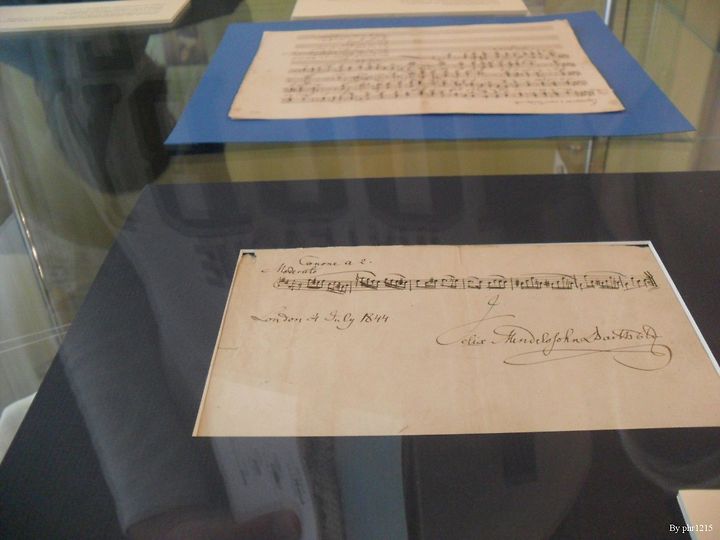 Canone a 2.
Moderato
London 4 July 1844
Felix Mendelssohn Bartholdy
By phr1215